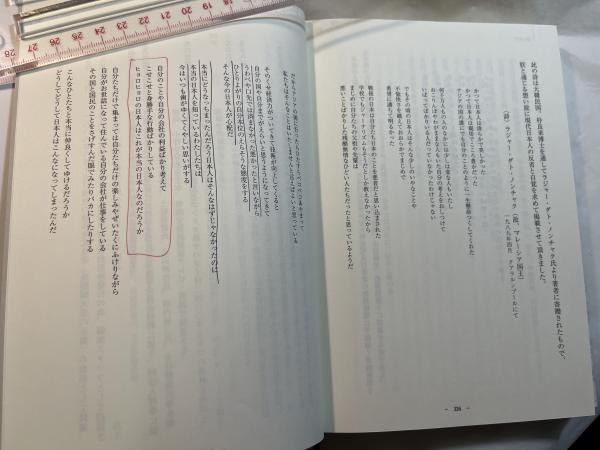 此の詩は大韓民国、朴烈来博士を通してラジャー・ダト・ノンチック氏より著者に寄贈されたもので、
訳を通じる想い故に現代日本人の反省と自覚を求めて掲載させて頂きました。
（詩）ラジャー・ダト・ノンチック
一九八九年四月 クアラルンプールにて
かつて日本人は清らかで美しかった
かつて日本人は親切でこころ豊かだった
アジアの国の誰にでも
自分のことのように一生懸命つくしてくれた
何千万人もの人のなかには少しは変な人もいたし
おこりんぼやわがままな人もいた
自分の考えをおしつけて
いばってばかりいる人だっていなかったわけじゃない
でもその頃の日本人はそんな少しのいやなことや
不愉快さを越えておおらかでまじめで
希望に満ちて明るかった
戦後の日本人は自分たち日本人のことを悪者だと思い込まされた
学校でもジャーナリズムもそうだとしか教えなかったから
まじめに自分たちの父祖や先輩は
悪いことばかりした残酷無情なひどい人たちだったと思っているようだ
226
だからアジアの国に行ったら
私たちは
そのくせ経済力がついてきて技術が向上してくると
自分の国や自分までがえらいと思うようになってきて
うわべや口先では済まなかった悪かったと言いながら
ひとりよがりの自分本位のえらそうな態度をする
そんな今の日本人が心配だ
本当にどうなっちまったんだろう日本人はそんなはずじゃなかったのに
本当の日本人を知っているわたしたちは
今はいつも歯がゆくてくやしい思いがする
自分のことや自分の会社の利益ばかり考えて
こせこせと身勝手な行動ばかりしている
ヒョロヒョロの日本人はこれが本当の日本人なのだろうか
自分たちだけで集まっては自分たちだけの楽しみやぜいたくにふけりながら
自分がお世話になって住んでいる自分の会社が仕事をしている
その国と国民のことをさげすんだ眼でみたりバカにしたりする
こんなひとたちと本当に仲良くしてゆけるだろうか
どうしてどうして日本人はこんなになってしまったんだ